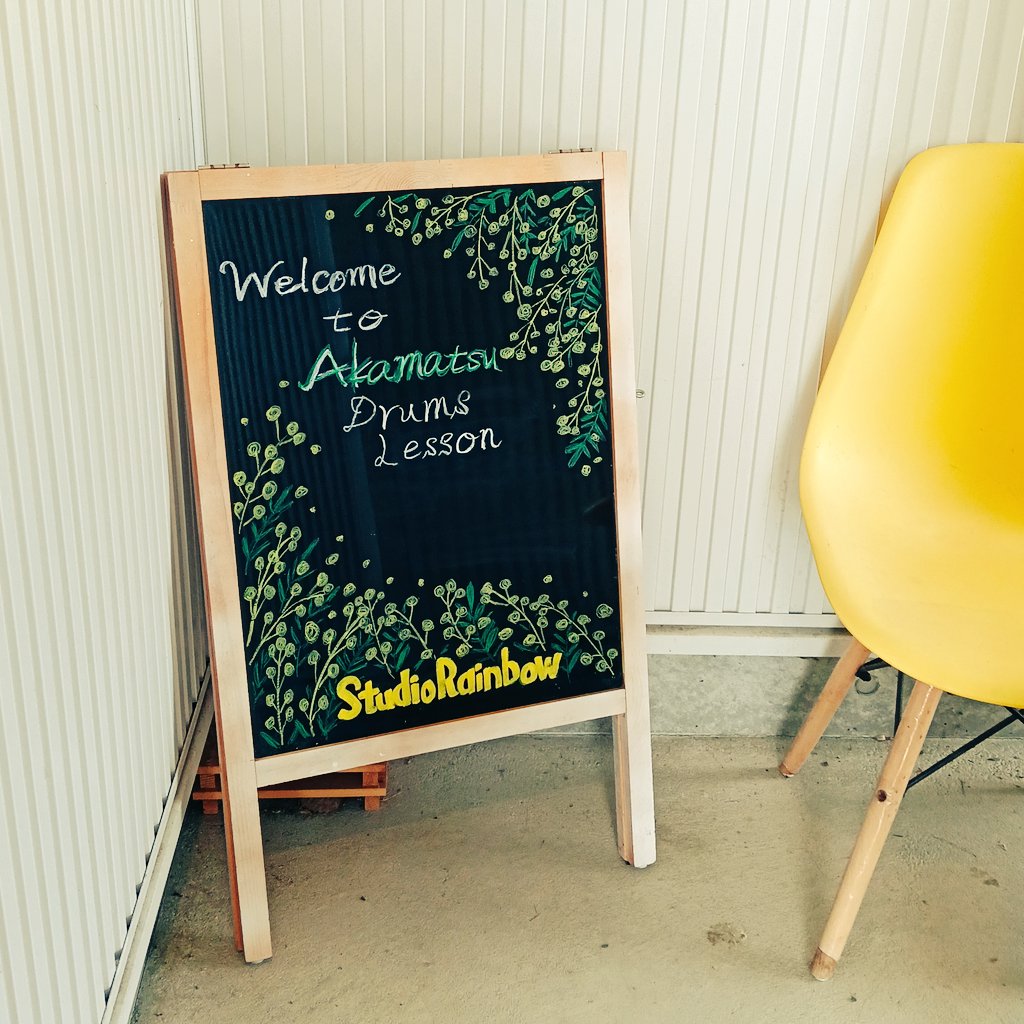 Welcome
to
Akamatsu
Drums
Lesson
StudioRainbow